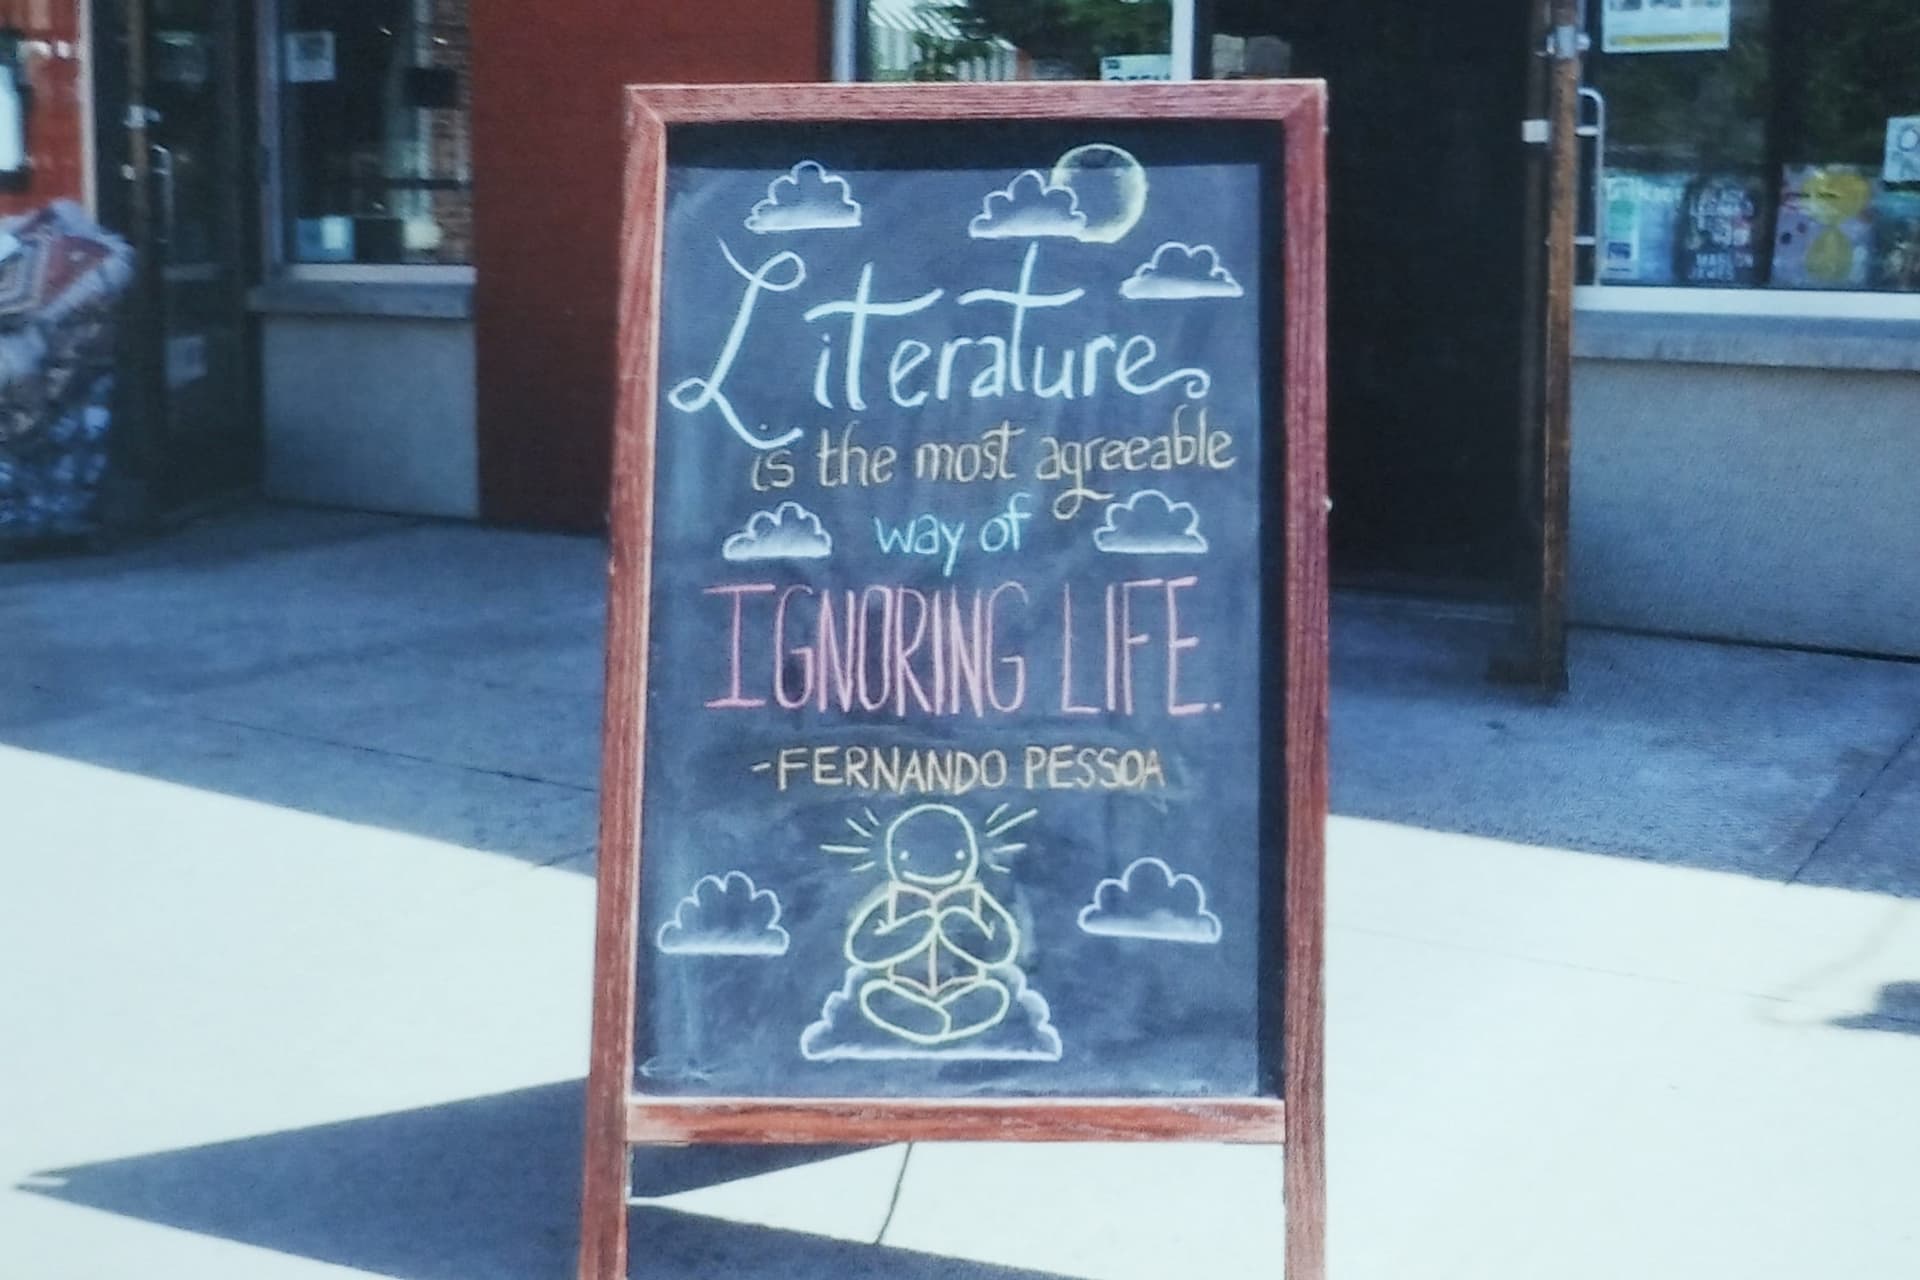 Literature
is the most agreeable
way of
IGNORING LIFE.
-FERNANDO PESSOA
MARLON
JAMES